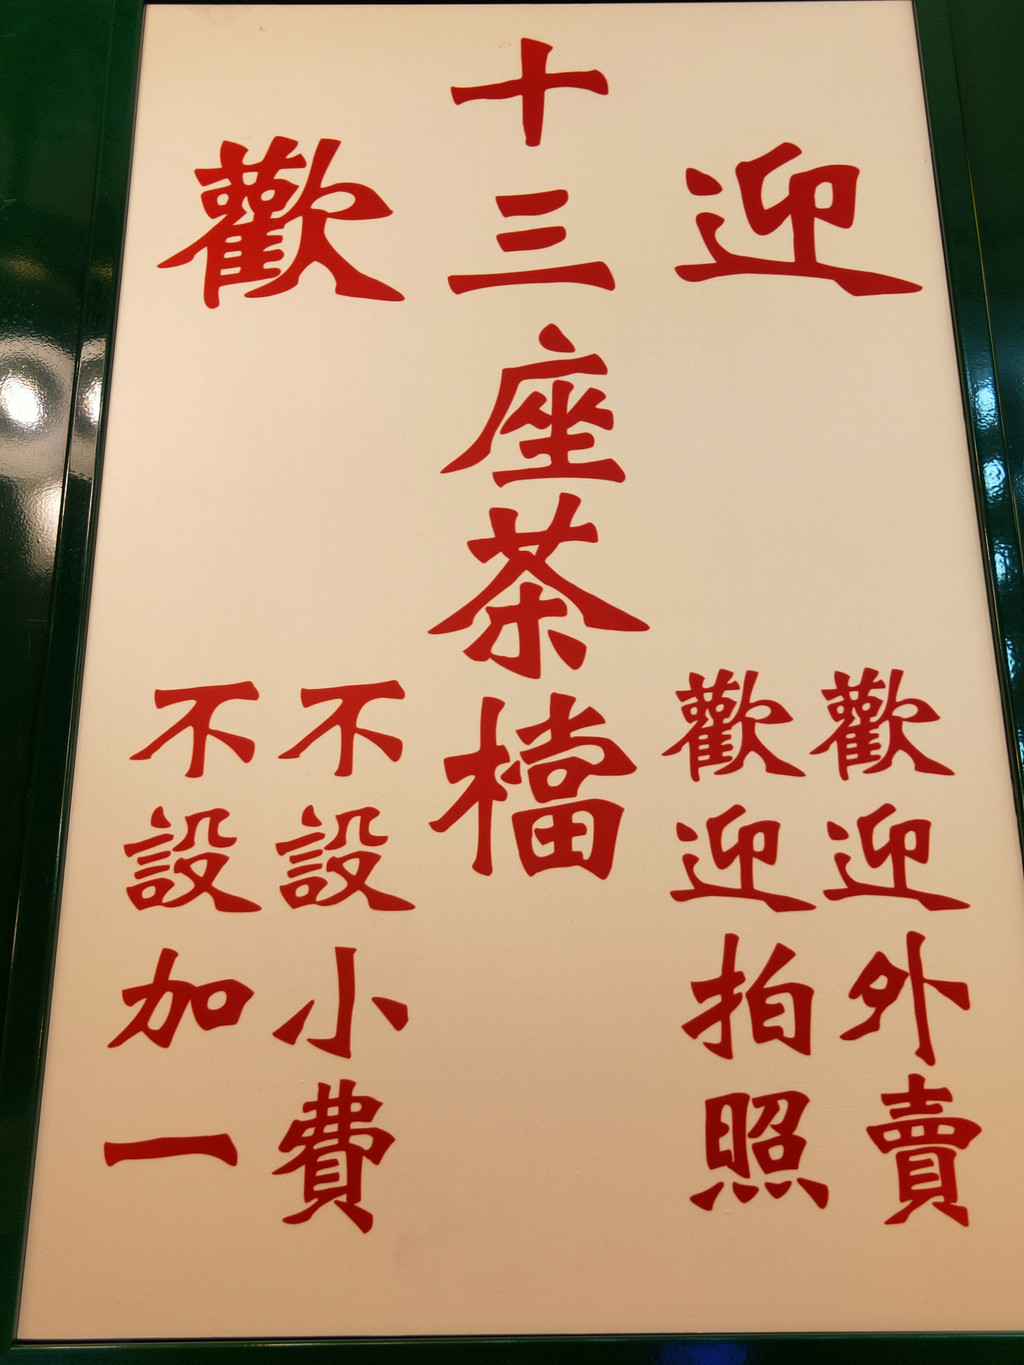 歡迎
十三座茶檔
歡迎外賣
歡迎拍照
不設小費
不設加一